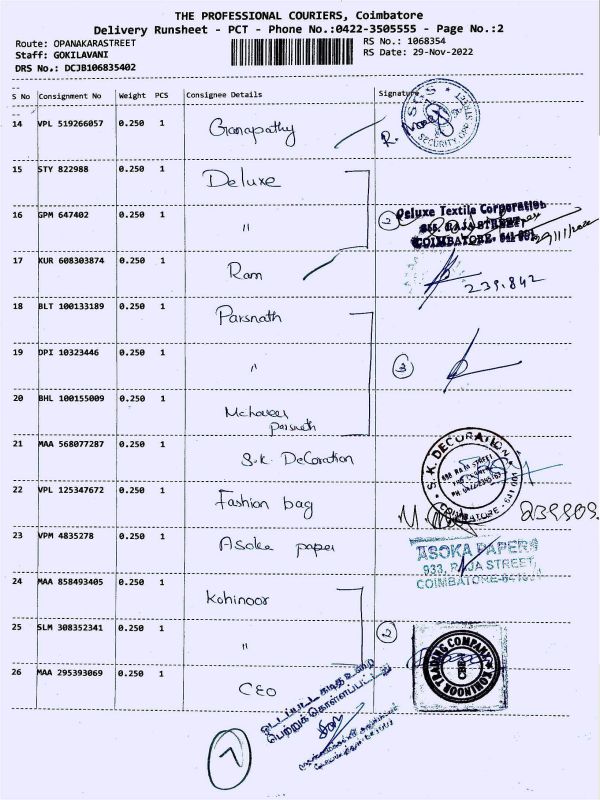 THE PROFESSIONAL COURIERS, Coimbatore
Delivery Runsheet - PCT - Phone No.:0422-3505555 - Page No.:2
Route: OPANAKARASTREET
RS No.: 1068354
Staff: GOKILAVANI
RS Date: 29-Nov-2022
DRS No.: DCJB106835402
S No Consignment No Weight PCS Consignee Details Signature
14 VPL 519266057 0.250 1 Ganapathy
SECURITY
15 STY 822988 0.250 1 Deluxe
16 GPM 647402 0.250 1 " 2
Deluxe Textile Corporation
RAJA STREET,
COIMBATORE- 641 001
17 KUR 608303874 0.250 1 Ram
239842
18 BLT 100133189 0.250 1 Parsnath
19 DPI 10323446 0.250 1 " 3
20 BHL 100155009 0.250 1 Mahaveer
parsnath
21 MAA 568077287 0.250 1 S.K. Decoration
S. K. DECORATION
COIMBATORE
22 VPL 125347672 0.250 1 Fashion bag
23 VPM 4835278 0.250 1 Asoka paper
ASOKA PAPERS
933, RAJA STREET,
COIMBATORE-641001
24 MAA 858493405 0.250 1 Kohinoor
25 SLM 308352341 0.250 1 " 2
KOHINOOR TRADING COMPANY
26 MAA 295393069 0.250 1 CEO
பெற்றுக் கொள்ளப்பட்டது
7